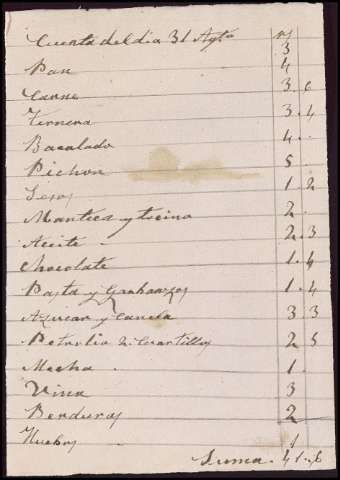 Cuenta del dia 31 Agto rs
Pan 3
Carne 4
Ternera 3 6
Bacalado 3.4
Pichon 4.
Sesos 5.
Manteca y tocino 1.2
Aceite 2.
Chocolate 2.3
Pasta y Ganbanzos 1.4
Azucar y Canela 1.4
Petrolio 2 Cuartillos 3 3
Mecha 2 5
Vino 1.
Berduras 3
Huebos 2
1
Suma. 41.6